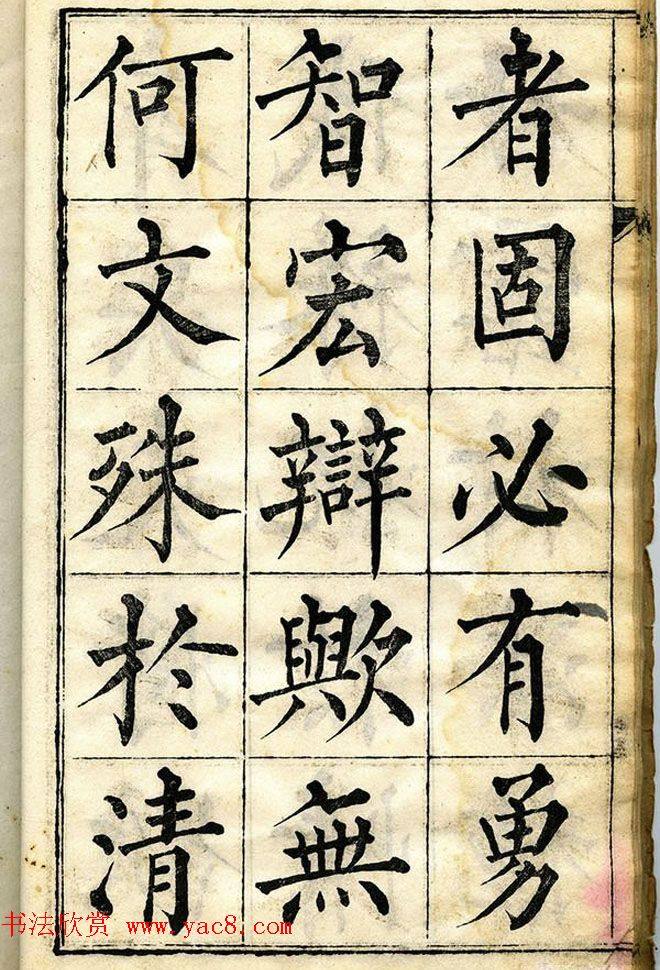 者固必有勇
智宏辯歟無
何文殊於清
书法欣赏 www.yac8.com